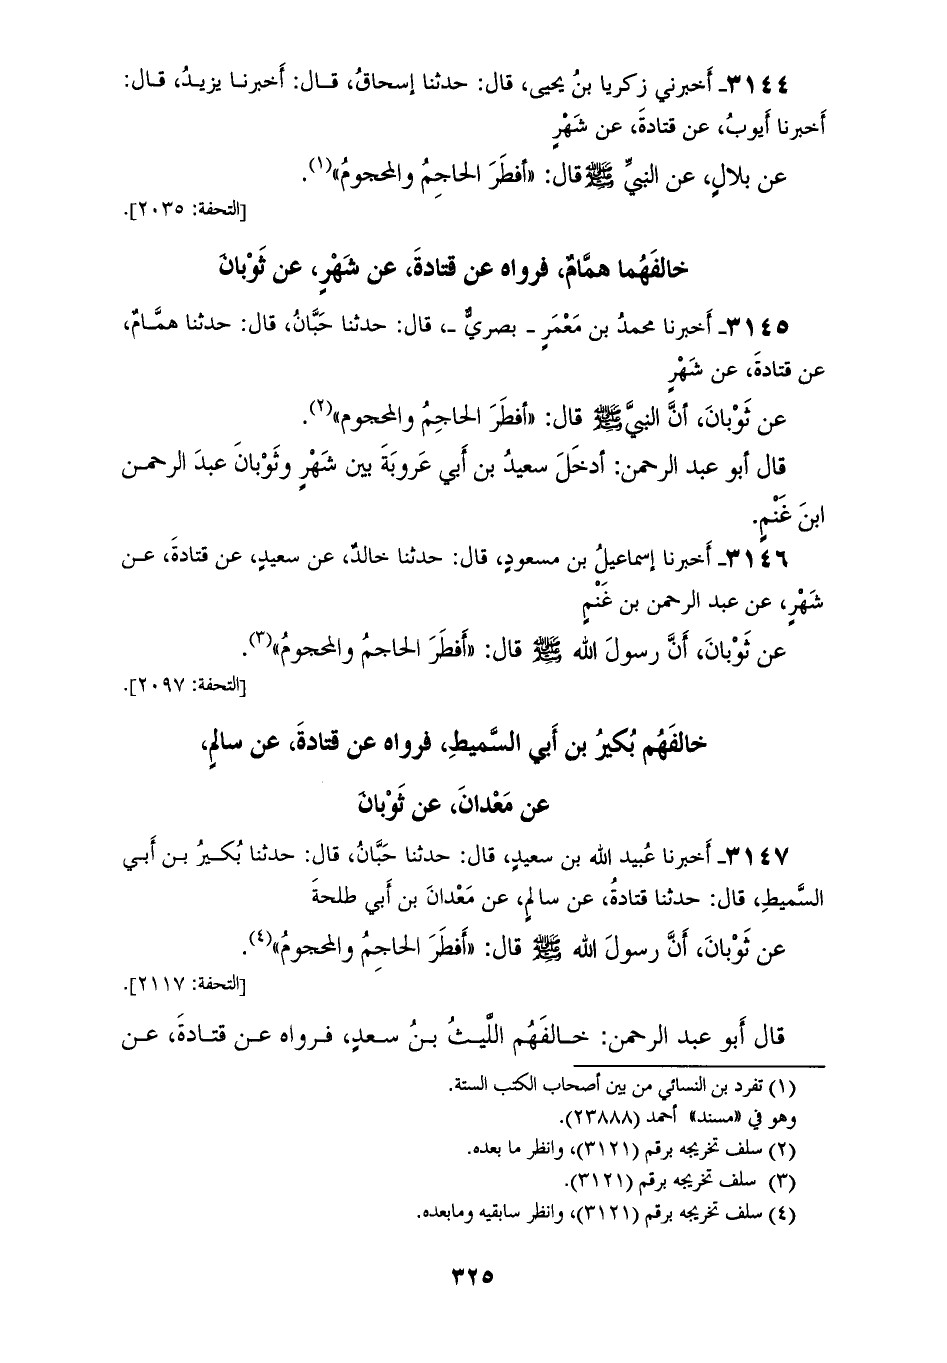 ٣١٤٤ـ أَخبرني زكريا بنُ يحيى، قال: حدثنا إسحاقُ، قـال: أَخبرنـا يزيـدُ، قـال:
أَخبرنا أَيوبُ، عن قتادةَ، عن شَهْرٍ
عن بلالٍ، عن النبيِّ ﷺ قال: «أفطَرَ الحاجِمُ والمحجومُ»(١).
[التحفة: ٢٠٣٥].
خالفَهُما همَّامٌ، فرواه عن قتادةَ، عن شَهْرٍ، عن ثَوْبانَ
٣١٤٥ـ أَخبرنا محمدُ بن مَعْمَرٍ ـ بصريٌّ ـ، قال: حدثنا حَبَّانُ، قال: حدثنا همَّـامٌ،
عن قتادةَ، عن شَهْرٍ
عن ثَوْبانَ، أنَّ النبيَّ ﷺ قال: «أفطَرَ الحاجِمُ والمحجوم»(٢).
قال أبو عبد الرحمن: أدخَلَ سعيدُ بن أَبي عَروبَةَ بين شَهْرٍ وثَوْبانَ عبدَ الرحمـن
ابنَ غَنْمٍ.
٣١٤٦ـ أَخبرنا إسماعيلُ بن مسعودٍ، قال: حدثنا خالدٌ، عن سعيدٍ، عن قتادةَ، عـن
شَهْرٍ، عن عبد الرحمن بن غَنْمٍ
عن ثَوْبانَ، أَنَّ رسولَ الله ﷺ قال: «أَفطَرَ الحاجمُ والمحجومُ»(٣).
[التحفة: ٢٠٩٧].
خالفَهُم بُكيرُ بن أَبي السَّميطِ، فرواه عن قتادةَ، عن سالمٍ،
عن مَعْدانَ، عن ثَوْبانَ
٣١٤٧ـ أَخبرنا عُبيد الله بن سعيدٍ، قال: حدثنا حَبَّانُ، قال: حدثنا بُكـيرُ بـن أَبـي
السَّميطِ، قال: حدثنا قتادةُ، عن سالمٍ، عن مَعْدانَ بن أَبي طلحةَ
عن ثَوْبانَ، أَنَّ رسولَ الله ﷺ قال: «أَفطَرَ الحاجِمُ والمحجومُ»(٤).
[التحفة: ٢١١٧].
قال أَبو عبد الرحمن: خـالفَهُم اللَّيـثُ بـنُ سـعدٍ، فـرواه عـن قتـادةَ، عـن
(١) تفرد بن النسائي من بين أصحاب الكتب الستة.
وهو في «مسند» أحمد (٢٣٨٨٨).
(٢) سلف تخريجه برقم (٣١٢١)، وانظر ما بعده.
(٣) سلف تخريجه برقم (٣١٢١).
(٤) سلف تخريجه برقم (٣١٢١)، وانظر سابقيه ومابعده.
٣٢٥